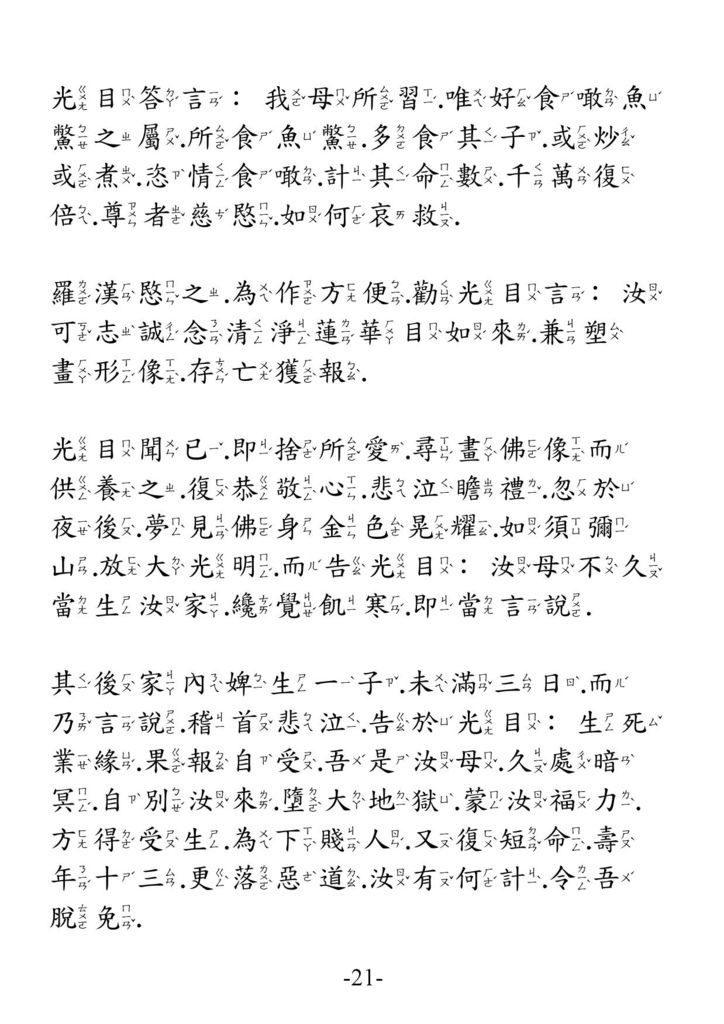 光目答言： 我母所習.唯好食噉魚
鱉之屬.所食魚鱉.多食其子.或炒
或煮.恣情食噉.計其命數.千萬復
倍.尊者慈愍.如何哀救.
羅漢愍之.為作方便.勸光目言： 汝
可志誠念清淨蓮華目如來.兼塑
畫形像.存亡獲報.
光目聞已.即捨所愛.尋畫佛像而
供養之.復恭敬心.悲泣瞻禮.忽於
夜後.夢見佛身金色晃耀.如須彌
山.放大光明.而告光目： 汝母不久
當生汝家.纔覺飢寒.即當言說.
其後家內婢生一子.未滿三日.而
乃言說.稽首悲泣.告於光目： 生死
業緣.果報自受.吾是汝母.久處暗
冥.自別汝來.墮大地獄.蒙汝福力.
方得受生.為下賤人.又復短命.壽
年十三.更落惡道.汝有何計.令吾
脫免.
-21-